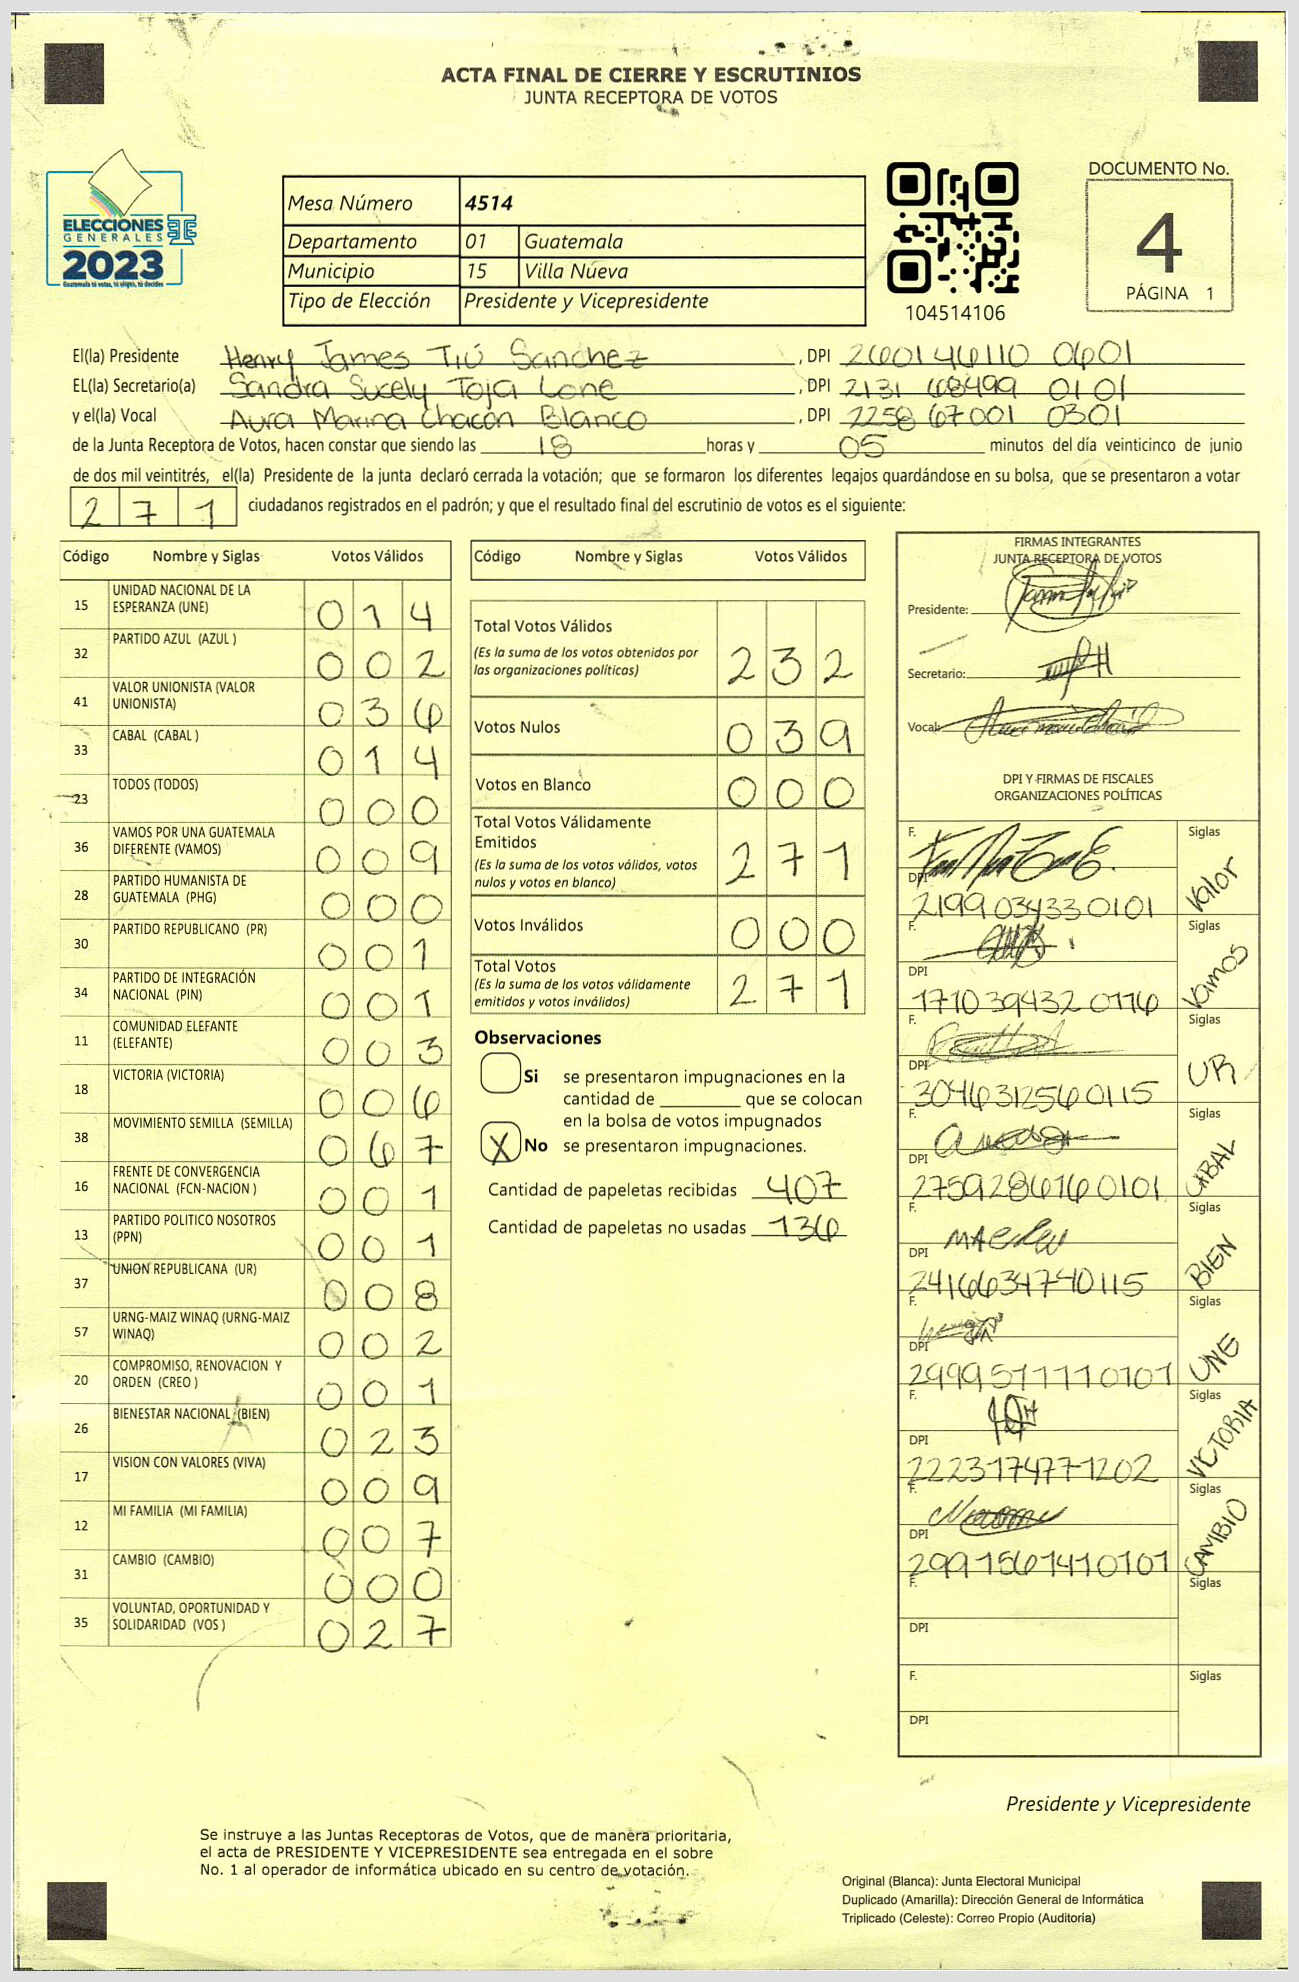 ACTA FINAL DE CIERRE Y ESCRUTINIOS
JUNTA RECEPTORA DE VOTOS
ELECCIONES
GENERALES
2023
Guatemala tú votas, tú eliges, tú decides
Mesa Número 4514
Departamento 01 Guatemala
Municipio 15 Villa Nueva
Tipo de Elección Presidente y Vicepresidente
104514106
DOCUMENTO No.
4
PÁGINA 1
El(la) Presidente Henry James Tiú Sanchez, DPI 260146110 0601
EL(la) Secretario(a) Sandra Sucely Toja Lone, DPI 2131 68499 0101
y el(la) Vocal Aura Marina Chacón Blanco, DPI 2258 67001 0301
de la Junta Receptora de Votos, hacen constar que siendo las 18 horas y 05 minutos del día veinticinco de junio
de dos mil veintitrés, el(la) Presidente de la junta declaró cerrada la votación; que se formaron los diferentes legajos guardándose en su bolsa, que se presentaron a votar
271 ciudadanos registrados en el padrón; y que el resultado final del escrutinio de votos es el siguiente:
Código Nombre y Siglas Votos Válidos
15 UNIDAD NACIONAL DE LA ESPERANZA (UNE) 014
32 PARTIDO AZUL (AZUL ) 002
41 VALOR UNIONISTA (VALOR UNIONISTA) 036
33 CABAL (CABAL ) 014
23 TODOS (TODOS) 000
36 VAMOS POR UNA GUATEMALA DIFERENTE (VAMOS) 009
28 PARTIDO HUMANISTA DE GUATEMALA (PHG) 000
30 PARTIDO REPUBLICANO (PR) 001
34 PARTIDO DE INTEGRACIÓN NACIONAL (PIN) 001
11 COMUNIDAD ELEFANTE (ELEFANTE) 003
18 VICTORIA (VICTORIA) 006
38 MOVIMIENTO SEMILLA (SEMILLA) 067
16 FRENTE DE CONVERGENCIA NACIONAL (FCN-NACION ) 001
13 PARTIDO POLITICO NOSOTROS (PPN) 001
37 UNION REPUBLICANA (UR) 008
57 URNG-MAIZ WINAQ (URNG-MAIZ WINAQ) 002
20 COMPROMISO, RENOVACION Y ORDEN (CREO ) 001
26 BIENESTAR NACIONAL (BIEN) 023
17 VISION CON VALORES (VIVA) 009
12 MI FAMILIA (MI FAMILIA) 007
31 CAMBIO (CAMBIO) 000
35 VOLUNTAD, OPORTUNIDAD Y SOLIDARIDAD (VOS ) 027
Código Nombre y Siglas Votos Válidos
Total Votos Válidos 232
(Es la suma de los votos obtenidos por
las organizaciones políticas)
Votos Nulos 039
Votos en Blanco 000
Total Votos Válidamente
Emitidos 271
(Es la suma de los votos válidos, votos
nulos y votos en blanco)
Votos Inválidos 000
Total Votos 271
(Es la suma de los votos válidamente
emitidos y votos inválidos)
Observaciones
Si se presentaron impugnaciones en la
cantidad de ________ que se colocan
en la bolsa de votos impugnados
X No se presentaron impugnaciones.
Cantidad de papeletas recibidas 407
Cantidad de papeletas no usadas 136
FIRMAS INTEGRANTES
JUNTA RECEPTORA DE VOTOS
Presidente:
Secretario:
Vocal:
DPI Y FIRMAS DE FISCALES
ORGANIZACIONES POLÍTICAS
F. Siglas Valor
DPI 2199034330101
F. Siglas Vamos
DPI 1710394320116
F. Siglas UR
DPI 3046312560115
F. Siglas CABAL
DPI 2759286160101
F. Siglas BIEN
DPI 2416634740115
F. Siglas UNE
DPI 2999511110101
F. Siglas VICTORIA
DPI 2223174771202
F. Siglas CAMBIO
DPI 2991561410101
F. Siglas
DPI
F. Siglas
DPI
Presidente y Vicepresidente
Se instruye a las Juntas Receptoras de Votos, que de manera prioritaria,
el acta de PRESIDENTE Y VICEPRESIDENTE sea entregada en el sobre
No. 1 al operador de informática ubicado en su centro de votación.
Original (Blanca): Junta Electoral Municipal
Duplicado (Amarilla): Dirección General de Informática
Triplicado (Celeste): Correo Propio (Auditoria)